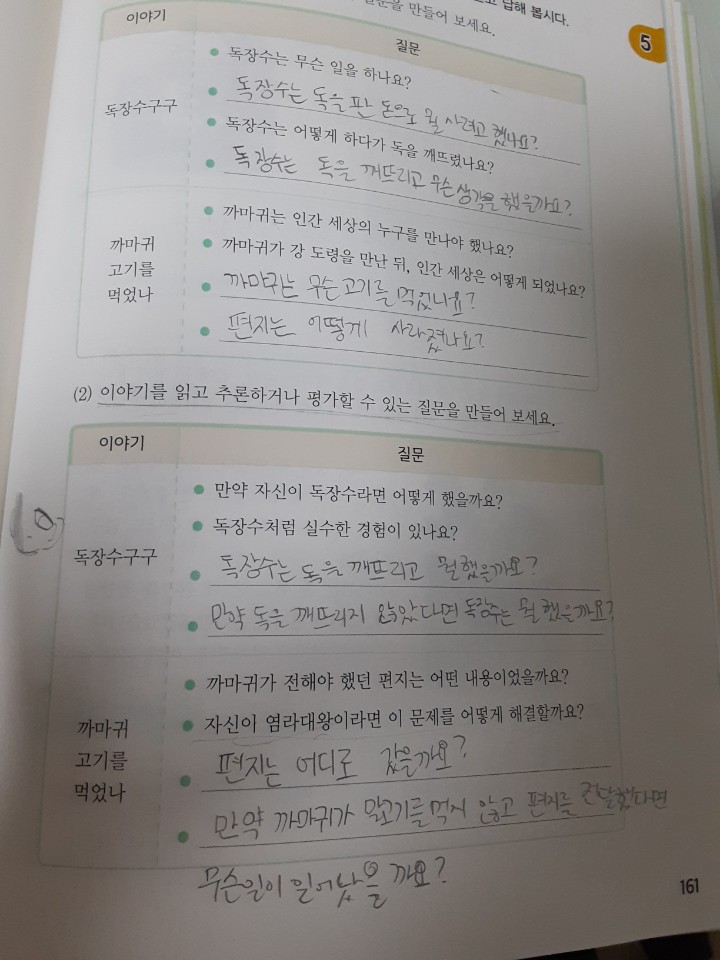 고 답해 봅시다.
질문을 만들어 보세요.
5
이야기
질문
독장수구구
독장수는 무슨 일을 하나요?
독장수는 독을 판 돈으로 뭘 사려고 했나요?
독장수는 어떻게 하다가 독을 깨뜨렸나요?
독장수는 독을 깨뜨리고 무슨 생각을 했을까요?
까마귀
고기를
먹었나
까마귀는 인간 세상의 누구를 만나야 했나요?
까마귀가 강 도령을 만난 뒤, 인간 세상은 어떻게 되었나요?
까마귀는 무슨 고기를 먹었나요?
편지는 어떻게 사라졌나요?
(2) 이야기를 읽고 추론하거나 평가할 수 있는 질문을 만들어 보세요.
이야기
질문
독장수구구
만약 자신이 독장수라면 어떻게 했을까요?
독장수처럼 실수한 경험이 있나요?
독장수는 독을 깨뜨리고 뭘 했을까요?
만약 독을 깨뜨리지 않았다면 독장수는 뭘 했을까요?
까마귀
고기를
먹었나
까마귀가 전해야 했던 편지는 어떤 내용이었을까요?
자신이 염라대왕이라면 이 문제를 어떻게 해결할까요?
편지는 어디로 갔을까요?
만약 까마귀가 말고기를 먹지 않고 편지를 전달했다면
무슨일이 일어났을 까요?
161